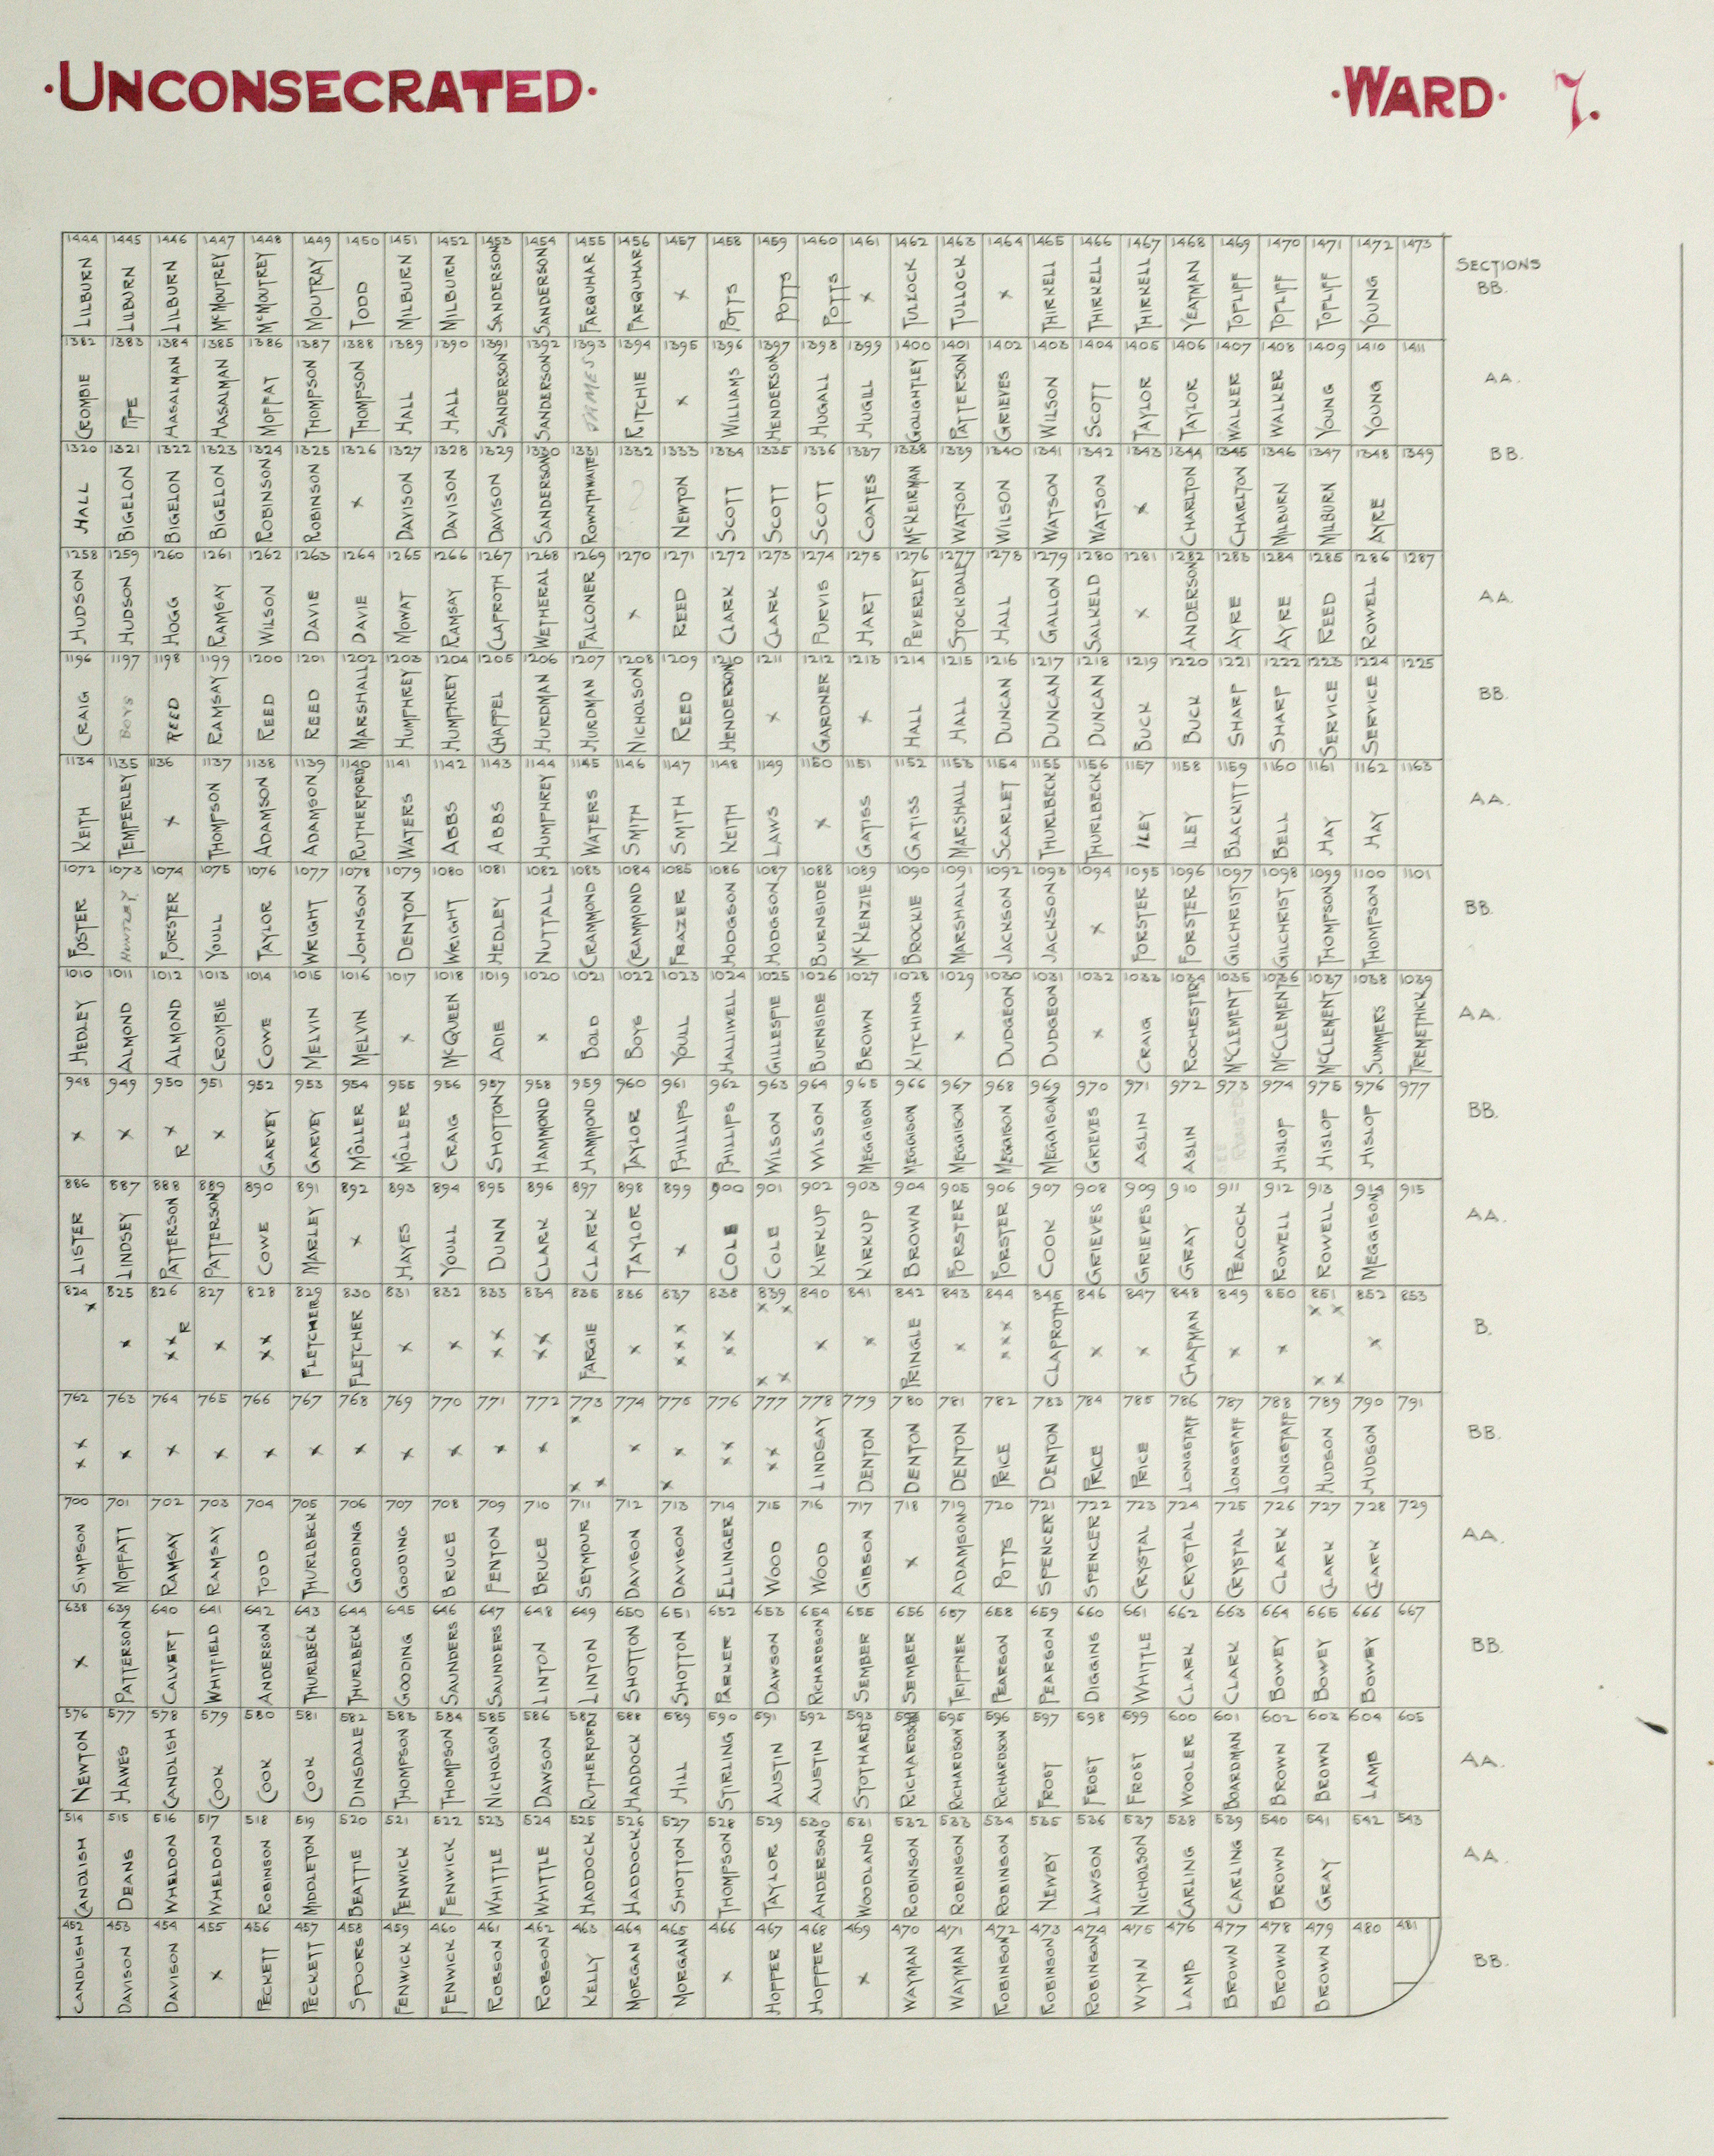 ·UNCONSECRATED· ·WARD· 7.
1444 1445 1446 1447 1448 1449 1450 1451 1452 1453 1454 1455 1456 1457 1458 1459 1460 1461 1462 1463 1464 1465 1466 1467 1468 1469 1470 1471 1472 1473
LILBURN LILBURN LILBURN McMOUTREY McMOUTREY MOUTRAY TODD MILBURN MILBURN SANDERSON SANDERSON FARQUHAR FARQUHAR x POTTS POTTS POTTS x TULLOCK TULLOCK x THIRKELL THIRKELL THIRKELL YEATMAN TOPLIFF TOPLIFF TOPLIFF YOUNG SECTIONS BB.
1382 1383 1384 1385 1386 1387 1388 1389 1390 1391 1392 1393 1394 1395 1396 1397 1398 1399 1400 1401 1402 1403 1404 1405 1406 1407 1408 1409 1410 1411
CROMBIE PIPE HASALMAN HASALMAN MOFFAT THOMPSON THOMPSON HALL HALL SANDERSON SANDERSON JAMES RITCHIE x WILLIAMS HENDERSON HUGALL HUGILL GOLIGHTLEY PATTERSON GRIEVES WILSON SCOTT TAYLOR TAYLOR WALKER WALKER YOUNG YOUNG AA.
1320 1321 1322 1323 1324 1325 1326 1327 1328 1329 1330 1331 1332 1333 1334 1335 1336 1337 1338 1339 1340 1341 1342 1343 1344 1345 1346 1347 1348 1349
HALL BIGELON BIGELON BIGELON ROBINSON ROBINSON x DAVISON DAVISON DAVISON SANDERSON ROWNTHWAITE ? NEWTON SCOTT SCOTT SCOTT COATES McKEIRMAN WATSON WILSON WATSON WATSON x CHARLTON CHARLTON MILBURN MILBURN AYRE BB.
1258 1259 1260 1261 1262 1263 1264 1265 1266 1267 1268 1269 1270 1271 1272 1273 1274 1275 1276 1277 1278 1279 1280 1281 1282 1283 1284 1285 1286 1287
HUDSON HUDSON HOGG RAMSAY WILSON DAVIE DAVIE MOWAT RAMSAY CLAPROTH WETHERAL FALCONER x REED CLARK CLARK PURVIS HART PEVERLEY STOCKDALE HALL GALLON SALKELD x ANDERSON AYRE AYRE REED ROWELL AA.
1196 1197 1198 1199 1200 1201 1202 1203 1204 1205 1206 1207 1208 1209 1210 1211 1212 1213 1214 1215 1216 1217 1218 1219 1220 1221 1222 1223 1224 1225
CRAIG BOYS REED RAMSAY REED REED MARSHALL HUMPHREY HUMPHREY CHAPPEL HURDMAN HURDMAN NICHOLSON REED HENDERSON x GARDNER x HALL HALL DUNCAN DUNCAN DUNCAN BUCK BUCK SHARP SHARP SERVICE SERVICE BB.
1134 1135 1136 1137 1138 1139 1140 1141 1142 1143 1144 1145 1146 1147 1148 1149 1150 1151 1152 1153 1154 1155 1156 1157 1158 1159 1160 1161 1162 1163
KEITH TEMPERLEY x THOMPSON ADAMSON ADAMSON RUTHERFORD WATERS ABBS ABBS HUMPHREY WATERS SMITH SMITH KEITH LAWS x GATISS GATISS MARSHALL SCARLET THURLBECK THURLBECK ILEY ILEY BLACKITT BELL HAY HAY AA.
1072 1073 1074 1075 1076 1077 1078 1079 1080 1081 1082 1083 1084 1085 1086 1087 1088 1089 1090 1091 1092 1093 1094 1095 1096 1097 1098 1099 1100 1101
FOSTER FORSTER YOULL TAYLOR WRIGHT JOHNSON DENTON WRIGHT HEDLEY NUTTALL CRAMMOND CRAMMOND FRAZER HODGSON HODGSON BURNSIDE McKENZIE BROCKIE MARSHALL JACKSON JACKSON x FORSTER FORSTER GILCHRIST GILCHRIST THOMPSON THOMPSON BB.
1010 1011 1012 1013 1014 1015 1016 1017 1018 1019 1020 1021 1022 1023 1024 1025 1026 1027 1028 1029 1030 1031 1032 1033 1034 1035 1036 1037 1038 1039
HEDLEY ALMOND ALMOND CROMBIE COWE MELVIN MELVIN x McQUEEN ADIE x BOLD BOYS YOULL HALLIWELL GILLESPIE BURNSIDE BROWN KITCHING x DUDGEON DUDGEON x CRAIG ROCHESTER McCLEMENT McCLEMENT McCLEMENT SUMMERS TREMETHICK AA.
948 949 950 951 952 953 954 955 956 957 958 959 960 961 962 963 964 965 966 967 968 969 970 971 972 973 974 975 976 977
x x x R x GARVEY GARVEY MÖLLER MÖLLER CRAIG SHOTTON HAMMOND HAMMOND TAYLOR PHILLIPS PHILLIPS WILSON WILSON MEGGISON MEGGISON MEGGISON MEGGISON MEGGISON GRIEVES ASLIN ASLIN HISLOP HISLOP HISLOP BB.
886 887 888 889 890 891 892 893 894 895 896 897 898 899 900 901 902 903 904 905 906 907 908 909 910 911 912 913 914 915
LISTER LINDSEY PATTERSON PATTERSON COWE MARLEY x HAYES YOULL DUNN CLARK CLARK TAYLOR x COLE COLE KIRKUP KIRKUP BROWN FORSTER FORSTER COOK GRIEVES GRIEVES GRAY PEACOCK ROWELL ROWELL MEGGISON AA.
824 825 826 827 828 829 830 831 832 833 834 835 836 837 838 839 840 841 842 843 844 845 846 847 848 849 850 851 852 853
x x x x R x x x FLETCHER FLETCHER x x x x x x FARGIE x x x x x x x x x x x x x PRINGLE x x x x CLAPROTH x x CHAPMAN x x x x x x x B.
762 763 764 765 766 767 768 769 770 771 772 773 774 775 776 777 778 779 780 781 782 783 784 785 786 787 788 789 790 791
x x x x x x x x x x x x x x x x x x x x x x LINDSAY DENTON DENTON DENTON PRICE DENTON PRICE PRICE LONGSTAFF LONGSTAFF LONGSTAFF HUDSON HUDSON BB.
700 701 702 703 704 705 706 707 708 709 710 711 712 713 714 715 716 717 718 719 720 721 722 723 724 725 726 727 728 729
SIMPSON MOFFATT RAMSAY RAMSAY TODD THURLBECK GOODING GOODING BRUCE FENTON BRUCE SEYMOUR DAVISON DAVISON ELLINGER WOOD WOOD GIBSON x ADAMSON POTTS SPENCER SPENCER CRYSTAL CRYSTAL CRYSTAL CLARK CLARK CLARK AA.
638 639 640 641 642 643 644 645 646 647 648 649 650 651 652 653 654 655 656 657 658 659 660 661 662 663 664 665 666 667
x PATTERSON CALVERT WHITFIELD ANDERSON THURLBECK THURLBECK GOODING SAUNDERS SAUNDERS LINTON LINTON SHOTTON SHOTTON PARKER DAWSON RICHARDSON SEMBER SEMBER TRIPPNER PEARSON PEARSON DIGGINS WHITTLE CLARK CLARK BOWEY BOWEY BOWEY BB.
576 577 578 579 580 581 582 583 584 585 586 587 588 589 590 591 592 593 594 595 596 597 598 599 600 601 602 603 604 605
NEWTON HAWES CANDLISH COOK COOK COOK DINSDALE THOMPSON THOMPSON NICHOLSON DAWSON RUTHERFORD HADDOCK HILL STIRLING AUSTIN AUSTIN STOTHARD RICHARDSON RICHARDSON RICHARDSON FROST FROST FROST WOOLER BOARDMAN BROWN BROWN LAMB AA.
514 515 516 517 518 519 520 521 522 523 524 525 526 527 528 529 530 531 532 533 534 535 536 537 538 539 540 541 542 543
CANDLISH DEANS WHELDON WHELDON ROBINSON MIDDLETON BEATTIE FENWICK FENWICK WHITTLE WHITTLE HADDOCK HADDOCK SHOTTON THOMPSON TAYLOR ANDERSON WOODLAND ROBINSON ROBINSON ROBINSON NEWBY LAWSON NICHOLSON CARLING CARLING BROWN GRAY AA.
452 453 454 455 456 457 458 459 460 461 462 463 464 465 466 467 468 469 470 471 472 473 474 475 476 477 478 479 480 481
CANDLISH DAVISON DAVISON x PECKETT PECKETT SPOORS FENWICK FENWICK ROBSON ROBSON KELLY MORGAN MORGAN x HOPPER HOPPER x WAYMAN WAYMAN ROBINSON ROBINSON ROBINSON WYNN LAMB BROWN BROWN BROWN BB.